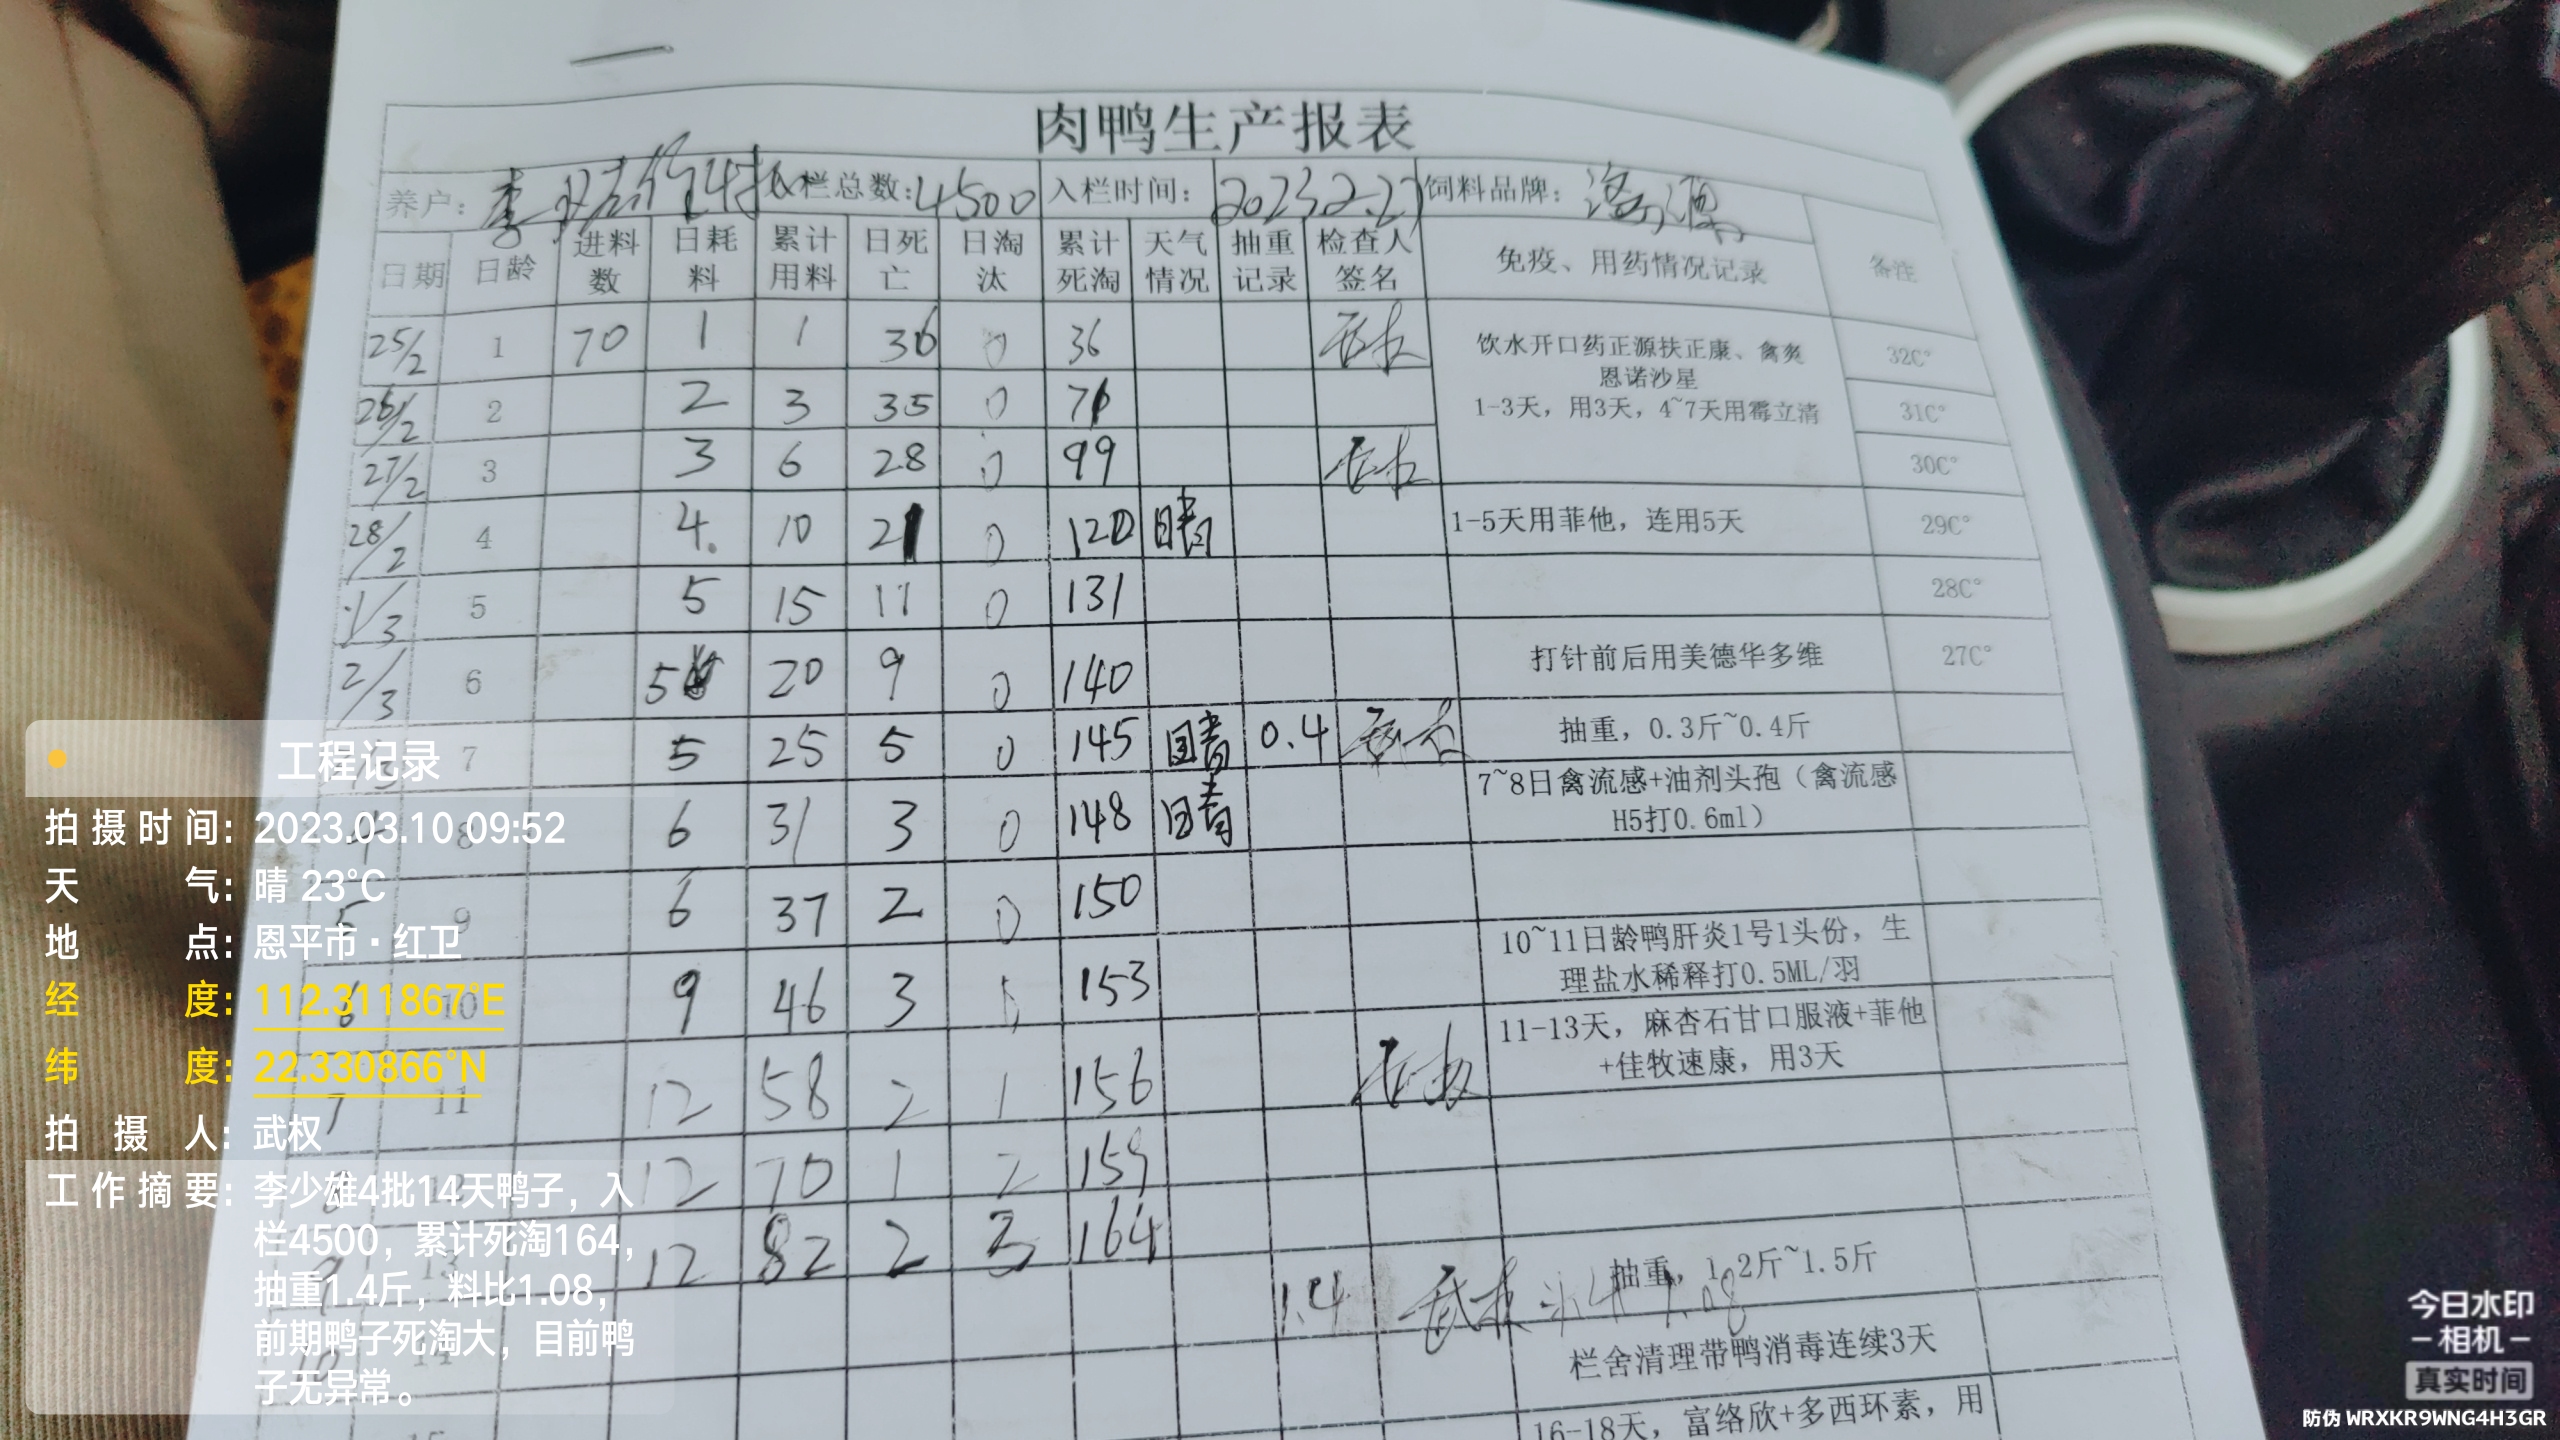 肉鸭生产报表
养户: 李 4批 入栏总数:4500 入栏时间: 2023.2.2 饲料品牌:
日期 日龄 进料数 日耗料 累计用料 日死亡 日淘汰 累计死淘 天气情况 抽重记录 检查人签名 免疫、用药情况记录 备注
25/2 1 70 1 1 36 0 36 武权 饮水开口药正源扶正康、禽炎 32C°
恩诺沙星
26/2 2 2 3 35 0 71 1-3天，用3天，4~7天用霉立清 31C°
27/2 3 3 6 28 0 99 武权 30C°
28/2 4 4. 10 21 0 120 晴 1-5天用菲他，连用5天 29C°
1/3 5 5 15 11 0 131 28C°
2/3 6 5 20 9 0 140 打针前后用美德华多维 27C°
7 5 25 5 0 145 晴 0.4 武权 抽重，0.3斤~0.4斤
4 8 6 31 3 0 148 晴 7~8日禽流感+油剂头孢（禽流感
H5打0.6ml）
5 9 6 37 2 0 150
6 10 9 46 3 153 10~11日龄鸭肝炎1号1头份，生
理盐水稀释打0.5ML/羽
7 11 12 58 2 1 156 武权 11-13天，麻杏石甘口服液+菲他
+佳牧速康，用3天
8 12 12 70 1 2 159
9 13 12 82 2 3 164
10 14 1.4 武权 1.08 抽重，1.2斤~1.5斤
栏舍清理带鸭消毒连续3天
15 16-18天，富络欣+多西环素，用
工程记录
拍摄时间: 2023.03.10 09:52
天气: 晴 23°C
地点: 恩平市·红卫
经度: 112.311867°E
纬度: 22.330866°N
拍摄人: 武权
工作摘要: 李少雄4批14天鸭子，入
栏4500，累计死淘164，
抽重1.4斤，料比1.08，
前期鸭子死淘大，目前鸭
子无异常。
今日水印
-相机-
真实时间
防伪 WRXKR9WNG4H3GR